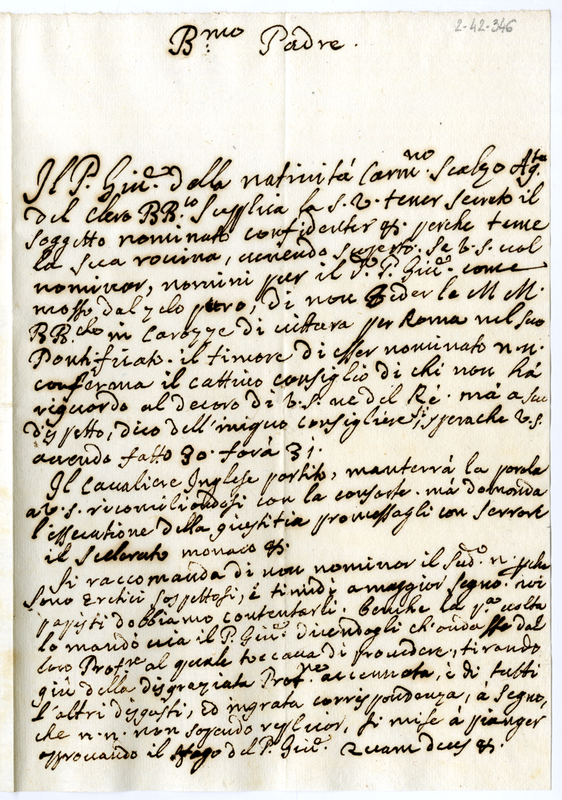 2-42-346
B.mo Padre.
Il P. Giu.e della natività Carm.no Scalzo Ag.te
del Clero BB.to Supplica la S.V. tener secreto il
soggetto nominato confidenter &. perche teme
la sua rovina, avendo sospetto. Se V.S. vol
nominar, nomini pur il P. Giu.e come
mosso dal zelo puro, di non veder le M M.
BB.che in Carozze di vittura per Roma nel suo
Pontificato. il timore di esser nominato n.n.
conferma il cattivo consiglio di chi non hà
riguardo al decoro di V.S. ne del Rè. mà a suo
dispetto, dico dell'iniquo consigliere, si spera che V.S.
avendo fatto 30. farà 31.
Il Cavaliere Inglese partito, manterrà la parola
a V.S. riconciliandosi con la consorte. mà domanda
l'essecutione della giustitia promessagli con
il Scelerato monaco &.
Si raccomanda di non nominar il Sud.o n. perche
sono Eretici sospettosi, è timidi a maggior segno. noi
papisti dobbiamo contentarli. Benche la p.a volta
lo mandò via il P. Giu.e dicendogli ch'andasse dal
loro al quale toccava di provedere, tirando
giù della disgraziata accennata, è di tutti
l'altri disgusti, ed ingrata corrispondenza, à segno,
che n.n. non sapendo replicar, si mise à pianger
approvando il del P. Giu.e Quare Deus &.